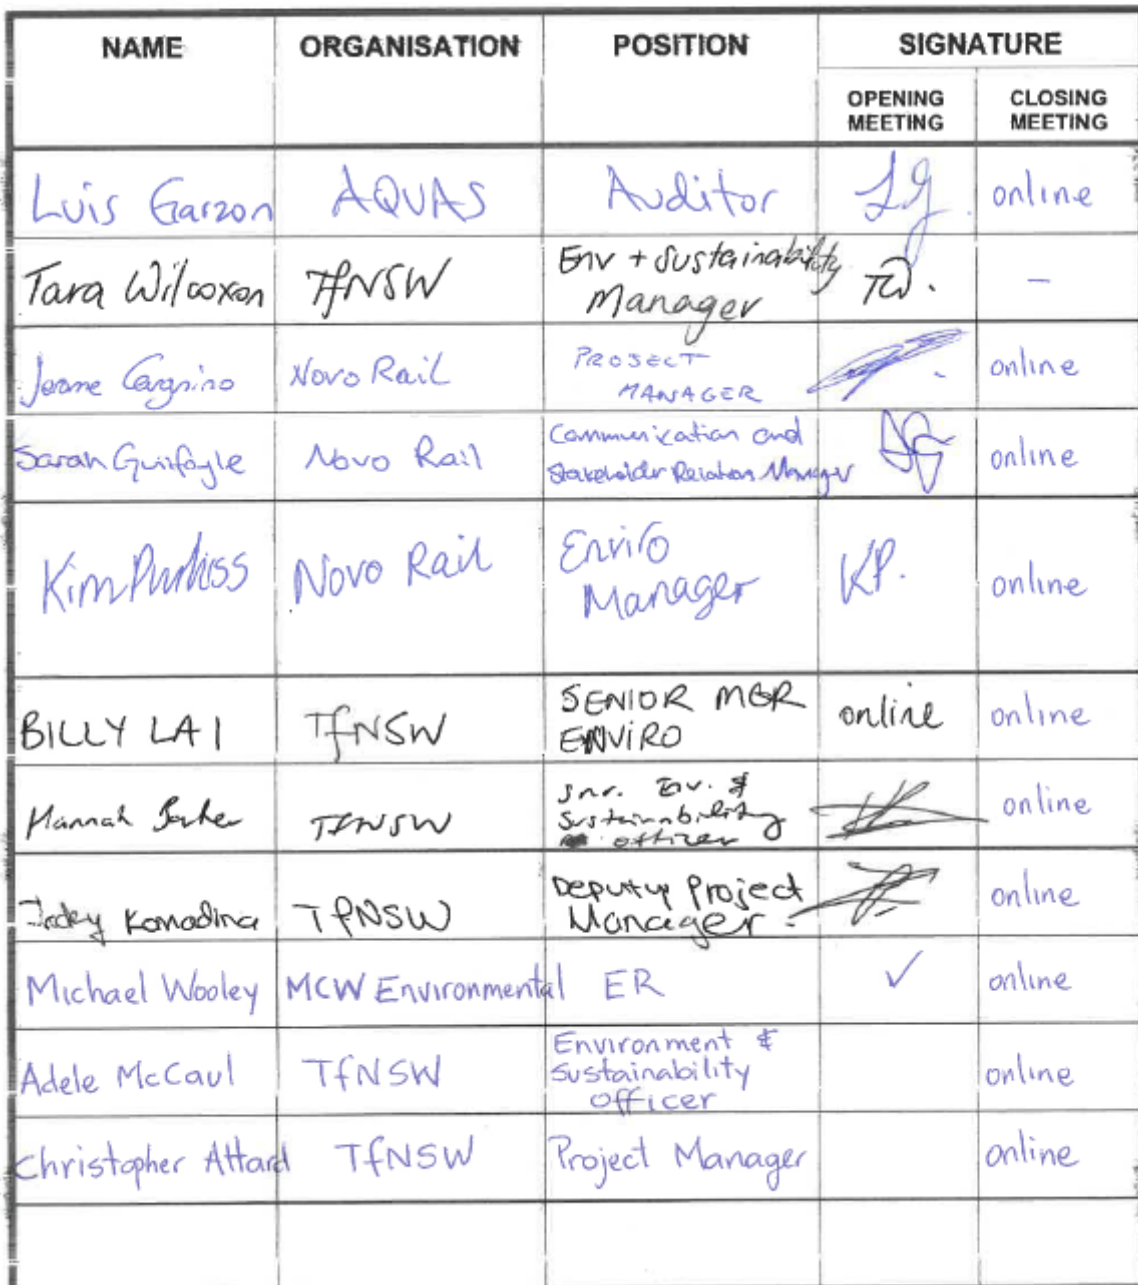 NAME ORGANISATION POSITION SIGNATURE
OPENING MEETING CLOSING MEETING
Luis Garzon AQUAS Auditor LG online
Tara Wilcoxon TfNSW Env + Sustainability Manager TW. -
Novo Rail PROJECT MANAGER online
Sarah Guifoyle Novo Rail Communication and Stakeholder Relations Manager online
Kim Purkiss Novo Rail Enviro Manager KP. online
BILLY LAI TfNSW SENIOR MGR ENVIRO online online
Hannah TfNSW Snr. Env. & Sustainability officer online
Jacky Komadina TfNSW Deputy Project Manager. online
Michael Wooley MCW Environmental ER ✓ online
Adele McCaul TfNSW Environment & Sustainability officer online
Christopher Attard TfNSW Project Manager online